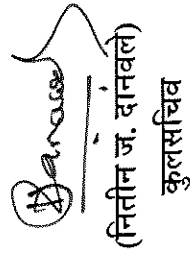 (नितीन ज. दानवले)
कुलसचिव